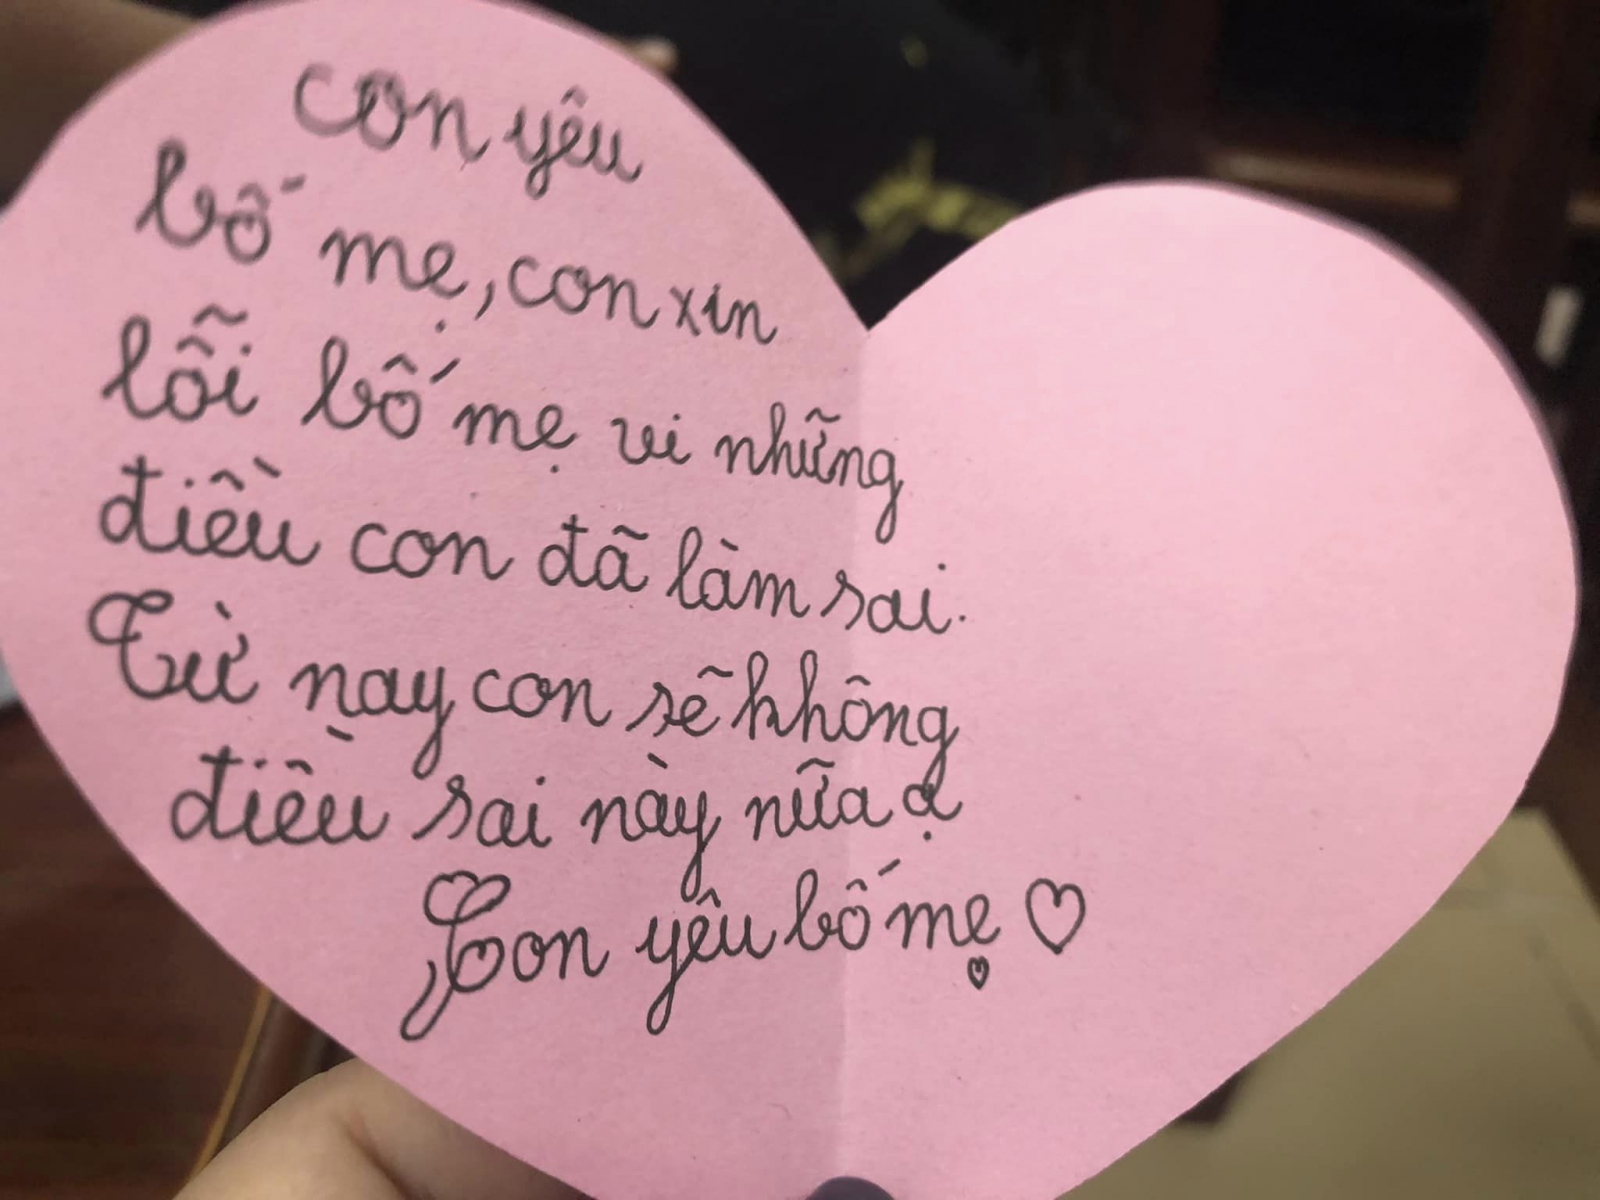 con yêu
bố mẹ, con xin
lỗi bố mẹ vi những
điều con đã làm sai.
Từ nay con sẽ không
điều sai này nữa ạ
Con yêu bố mẹ ♡